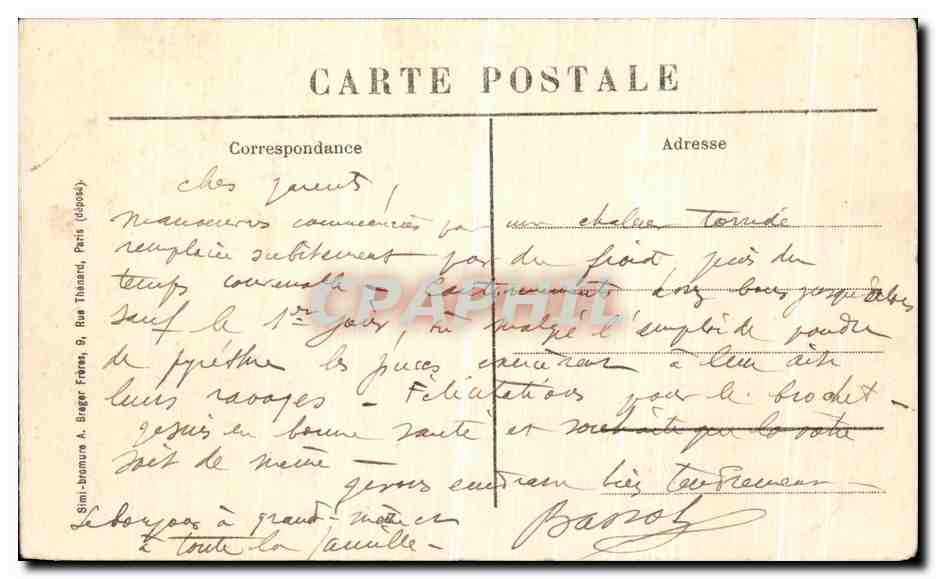 CARTE POSTALE
Correspondance
Adresse
chers parents,
manoeuvres commencées par une chaleur torride
remplacée subitement par du froid, puis du
temps convenable - Cantonnements assez bons jusque
sauf le 1er jour, où malgré l'emploi de poudre
de pyrèthre les puces exercèrent à leur aise
leurs ravages - Félicitations pour le brochet -
je suis en bonne santé et souhaite que la votre
soit de même -
je vous embrasse bien tendrement
Le bonjour à grand-mère et
à toute la famille -
Simi-bromure A. Breger Frères, 9, Rue Thénard, Paris (déposé).
CPAPHIL